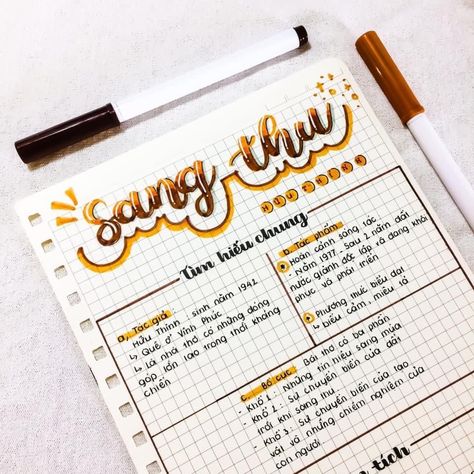 sang thu
HỮU THỈNH
Tìm hiểu chung
a, Tác giả
Hữu Thỉnh : sinh năm 1942
↳ Quê ở Vĩnh Phúc
↳ Là nhà thơ có những đóng
góp lớn lao trong thời kháng
chiến
b, Tác phẩm
Hoàn cảnh sáng tác
- Năm 1977 - sau 2 năm đất
nước giành độc lập và đang khôi
phục và phát triển
Phương thức biểu đạt
↳ biểu cảm, miêu tả
c, Bố cục : Bài thơ có ba phần
- Khổ 1 : Những tín hiệu sang mùa
trời khi sang thu
- Khổ 2 : Sự chuyển biến của đất
- Khổ 3 : Sự chuyển biến của tạo
vật và những chiêm nghiệm của
con người
tích